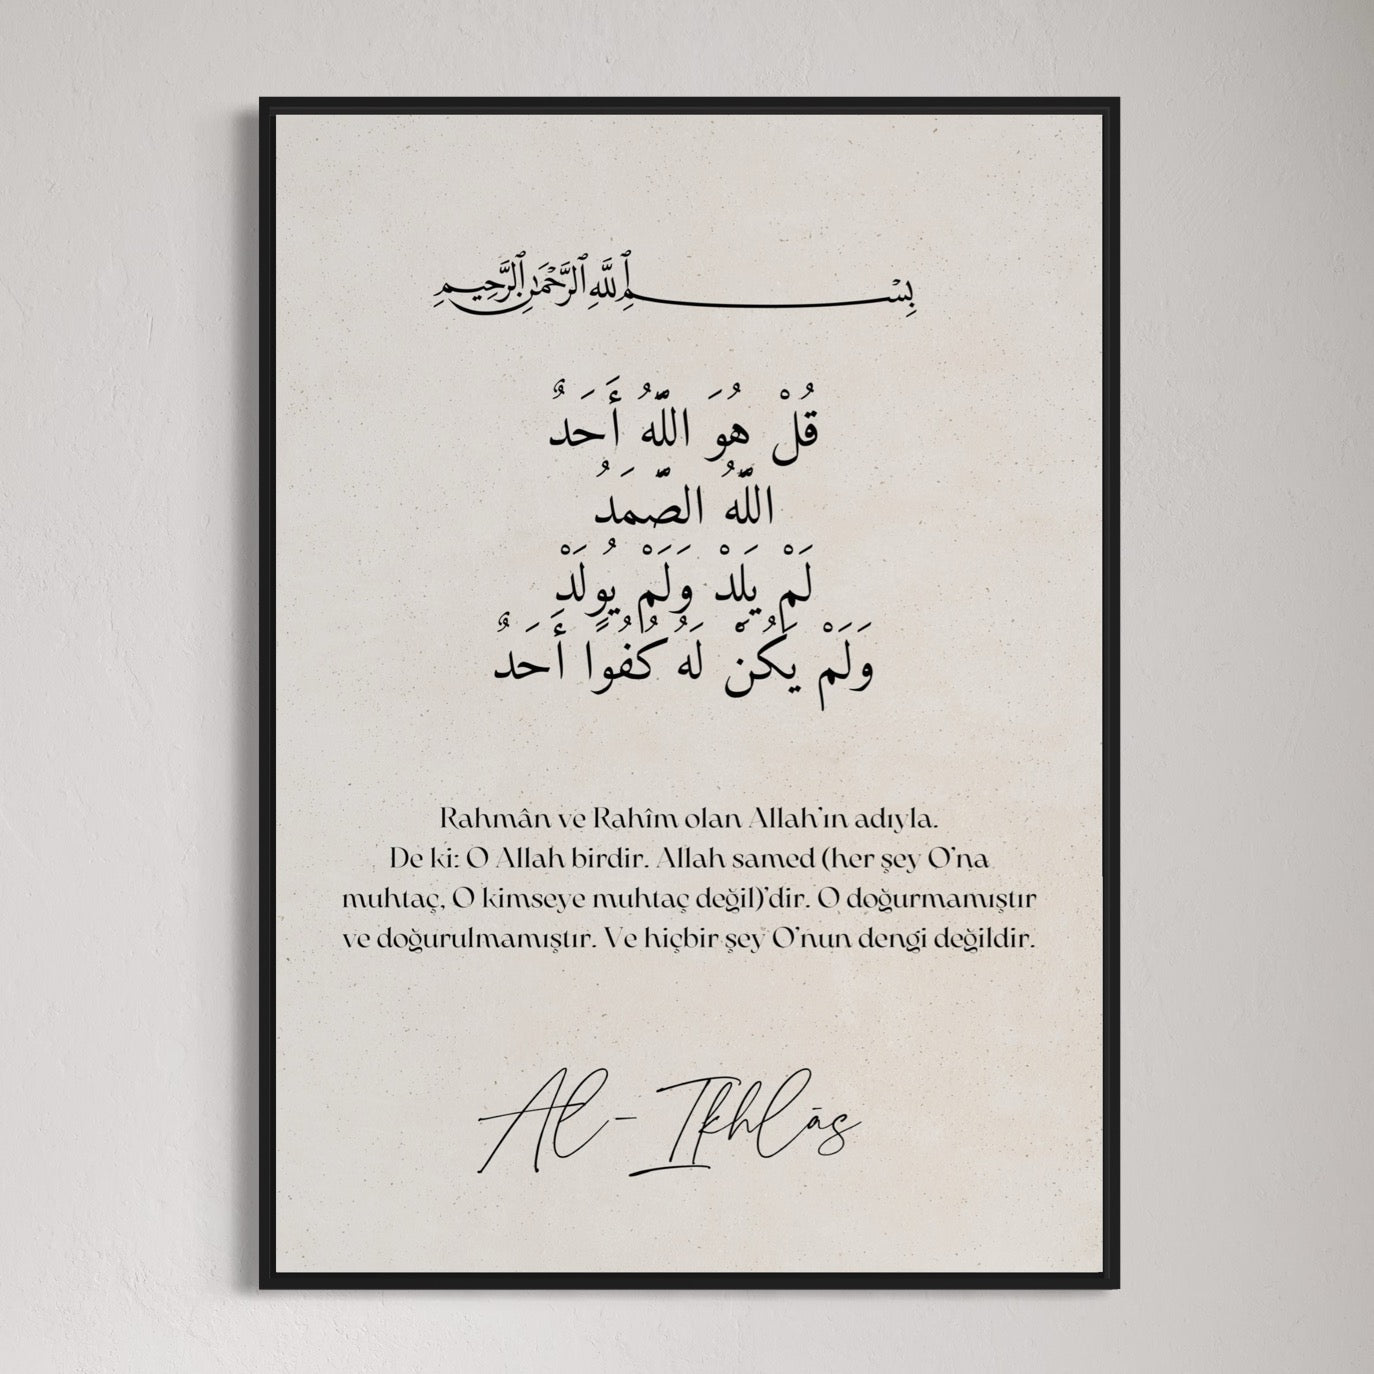 بِسْمِ ٱللَّهِ ٱلرَّحْمَٰنِ ٱلرَّحِيمِ
قُلْ هُوَ اللّٰهُ أَحَدٌ
اللّٰهُ الصَّمَدُ
لَمْ يَلِدْ وَلَمْ يُولَدْ
وَلَمْ يَكُنْ لَهُ كُفُوًا أَحَدٌ
Rahmân ve Rahîm olan Allah'ın adıyla.
De ki: O Allah birdir. Allah samed (her şey O'na
muhtaç, O kimseye muhtaç değil)'dir. O doğurmamıştır
ve doğurulmamıştır. Ve hiçbir şey O'nun dengi değildir.
Al-Ikhlās